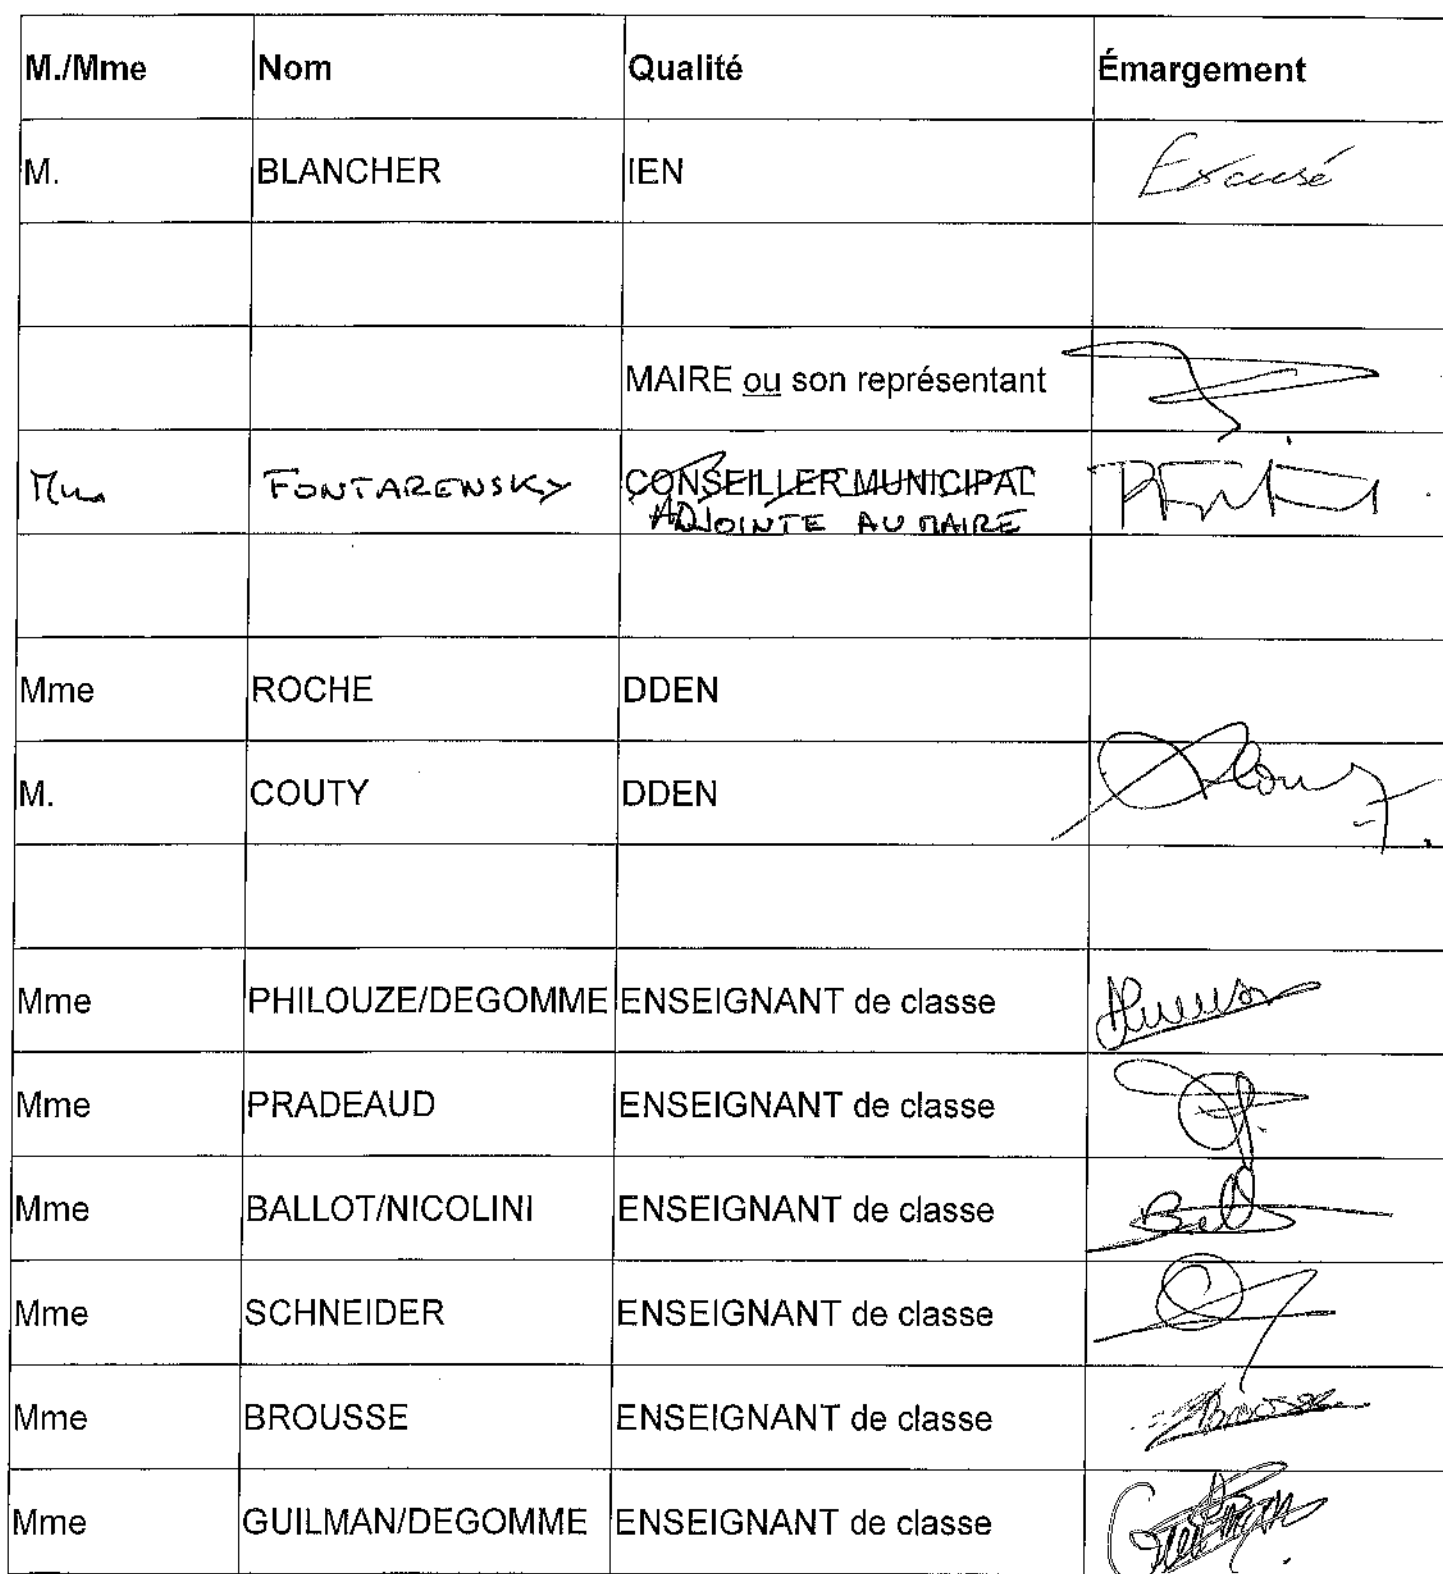 M./Mme Nom Qualité Émargement
M. BLANCHER IEN Excusé
MAIRE ou son représentant
Mme FONTARENSKY CONSEILLER MUNICIPAL
ADJOINTE AU MAIRE
Mme ROCHE DDEN
M. COUTY DDEN
Mme PHILOUZE/DEGOMME ENSEIGNANT de classe
Mme PRADEAUD ENSEIGNANT de classe
Mme BALLOT/NICOLINI ENSEIGNANT de classe
Mme SCHNEIDER ENSEIGNANT de classe
Mme BROUSSE ENSEIGNANT de classe
Mme GUILMAN/DEGOMME ENSEIGNANT de classe